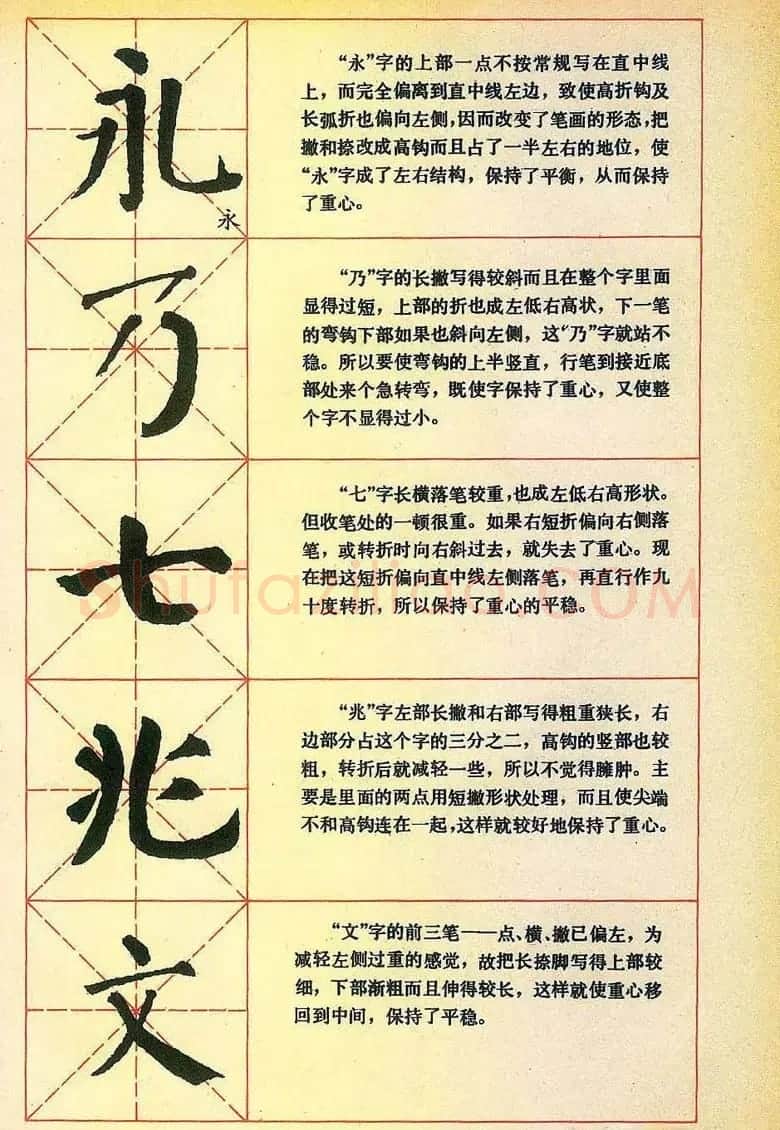 永
永
“永”字的上部一点不按常规写在直中线
上，而完全偏离到直中线左边，致使高折钩及
长弧折也偏向左侧，因而改变了笔画的形态，把
撇和捺改成高钩而且占了一半左右的地位，使
“永”字成了左右结构，保持了平衡，从而保持
了重心。
乃
“乃”字的长撇写得较斜而且在整个字里面
显得过短，上部的折也成左低右高状，下一笔
的弯钩下部如果也斜向左侧，这“乃”字就站不
稳。所以要使弯钩的上半竖直，行笔到接近底
部处来个急转弯，既使字保持了重心，又使整
个字不显得过小。
七
“七”字长横落笔较重，也成左低右高形状。
但收笔处的一顿很重。如果右短折偏向右侧落
笔，或转折时向右斜过去，就失去了重心。现
在把这短折偏向直中线左侧落笔，再直行作九
十度转折，所以保持了重心的平稳。
shufaziliao.COM
兆
“兆”字左部长撇和右部写得粗重狭长，右
边部分占这个字的三分之二，高钩的竖部也较
粗，转折后就减轻一些，所以不觉得臃肿。主
要是里面的两点用短撇形状处理，而且使尖端
不和高钩连在一起，这样就较好地保持了重心。
文
“文”字的前三笔——点、横、撇已偏左，为
减轻左侧过重的感觉，故把长捺脚写得上部较
细，下部渐粗而且伸得较长，这样就使重心移
回到中间，保持了平稳。